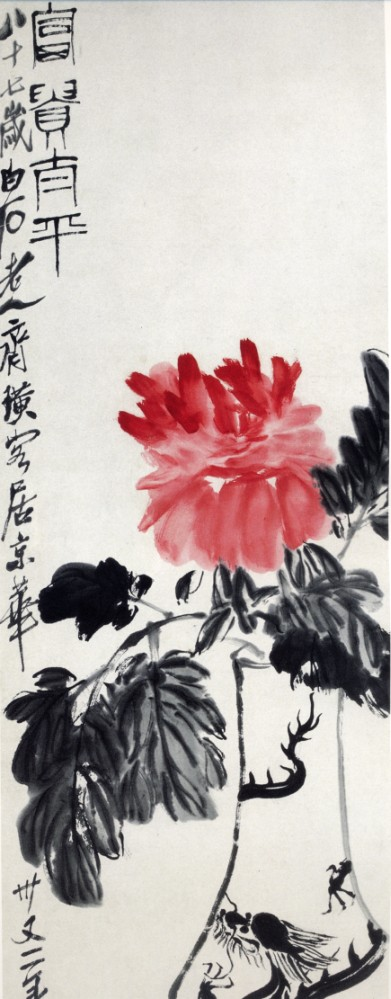 富貴有平
八十七歲白石老人齊璜客居京華卅又二年